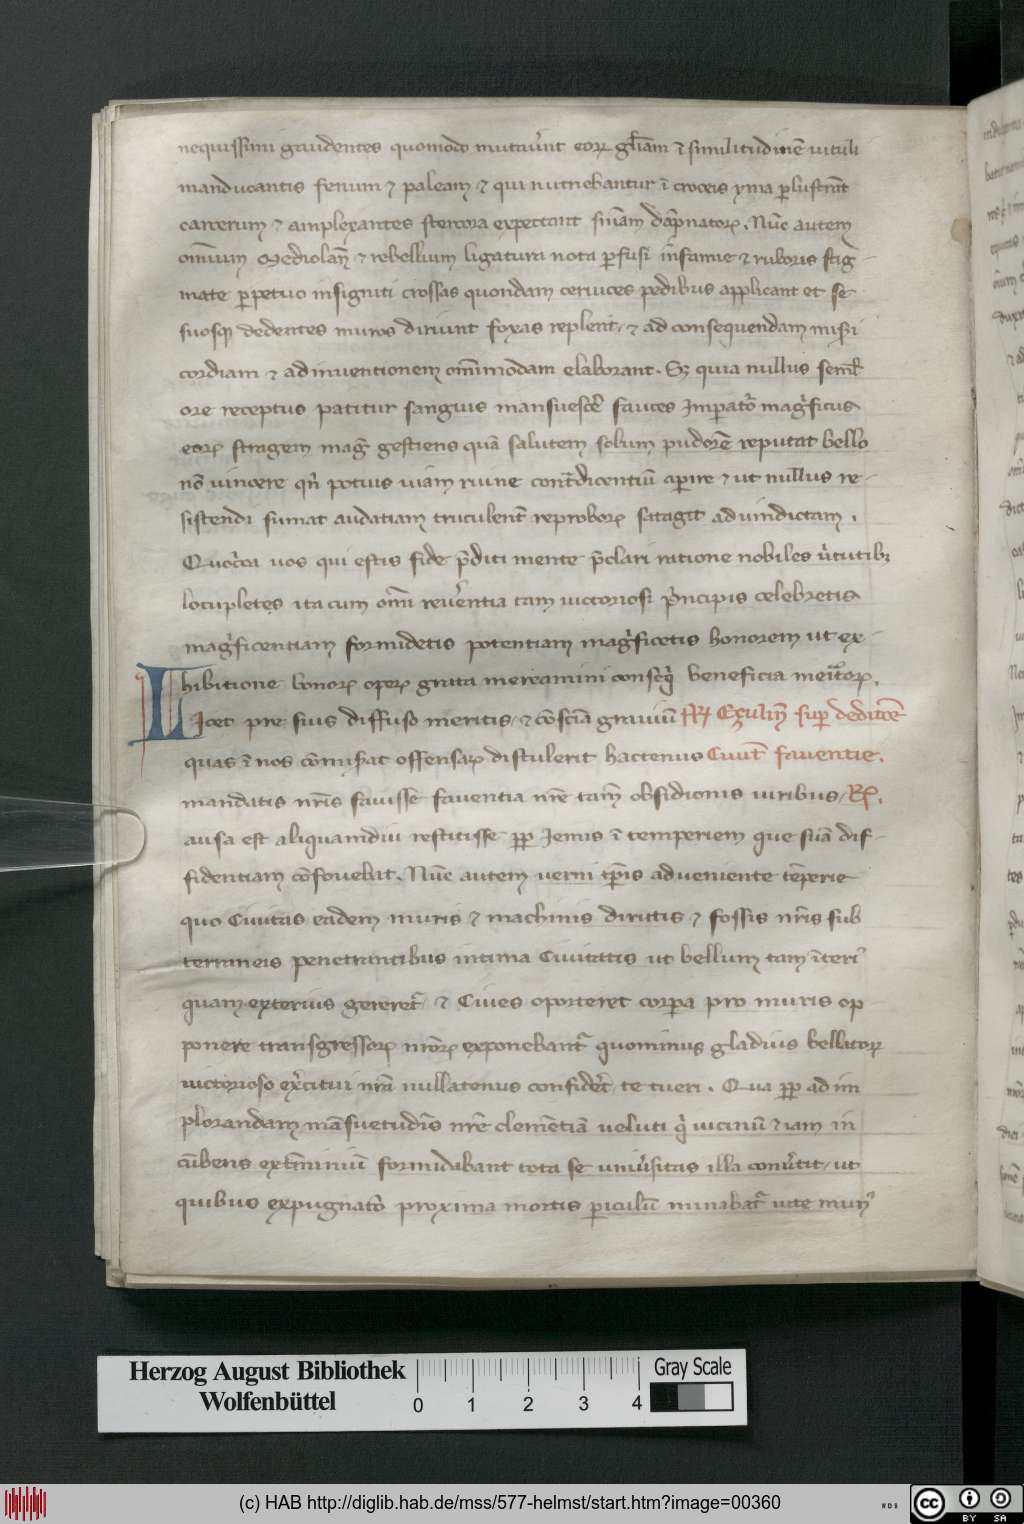 nequissimi gaudentes quomodo mutaũnt eoꝝ gl̃iam ⁊ similitudinē uituli
manducantis fenum ⁊ paleam ⁊ qui nutriebantur ī croceis yma ꝑlustrãt
carcerum ⁊ amplexantes stercora expectant sn̄iam dāpnatoꝝ. Nūc autem
om̄ium Mediolan̄ ⁊ rebellium ligatura nota ꝑfusi infamie ⁊ ruboris stig-
mate ꝑpetuo insigniti crossas quondam ceruices pedibus applicant et se
suosqꝫ dedentes muros diriunt foxas replent / ⁊ ad consequendam mis̄i
cordiam ⁊ adinuentionem om̄imodam elaborant. Sꝫ quia nullus sem̄l
ore receptus patitur sanguis mansuescẽ fauces Imꝑatõ mag̾ficus
eoꝝ stragem mag̃ gestiens quā salutem solum pudorē reputat bello
nō uincere qñ potius uiam ruine cont̃dicentiū aꝑire ⁊ ut nullus re-
sistendi sumat audatiam truculent̃ reproboꝝ satagit ad uindictam.
Quoc̾ca uos qui estis fide p̄diti mente p̄clari ratione nobiles ũtutibꝫ
locupletes ita cum om̄i reuẽentia tam uictoriosi p̾ncipis celebretis
mag̾ficentiam formidetis potentiam mag̾ficetis honorem ut ex-
hibitione bonoꝝ opeꝝ grata mereamini conseq̾ beneficia meritoꝝ.
Licet pre suis diffuso meritis / ⁊ cōsciā grauiū R̃ꝝ Exuliñ suꝑ deditiōe
quas ī nos cōmiserat offensaꝝ distulerit hactenus Ciuit̃ fauentie.
mandatis nr̄is fauisse fauentia nr̄e tam̄ obsidionis uiribus / Rꝝ.
ausa est aliquamdiu restitisse ꝓp Iemis ītemperiem que suā dif-
fidentiam cōfouebat. Nūc autem uerni tꝑis adueniente tēperie
quo Ciuitas eadem muris ⁊ machinis dirutis ⁊ fossis nr̄is sub
terraneis penetrantibus intima Ciuitatis ut bellum tam īteri᾽
quam exterius gereret̃ ⁊ Ciues oporteret corꝑa pro muris op
ponere transgressoꝝ nr̄oꝝ exponebant̃ quominus gladius bellatoꝝ
uictorioso ex̾citui nr̄o nullatenus confidet̃ te tueri. Qua ꝓp ad im
plorandam māsuetudīs nr̄e clemētiā ueluti q̾ uicinū ⁊ iam in
cūbens ext̃miniū formidabant tota se uniũsitas illa conũtit / ut
quibus expugnatõ proxima mortis ꝑiculū minabat̃ uite mun᾽
Herzog August Bibliothek
Wolfenbüttel
0 1 2 3 4
Gray Scale
(c) HAB http://diglib.hab.de/mss/577-helmst/start.htm?image=00360
WDB
cc BY SA